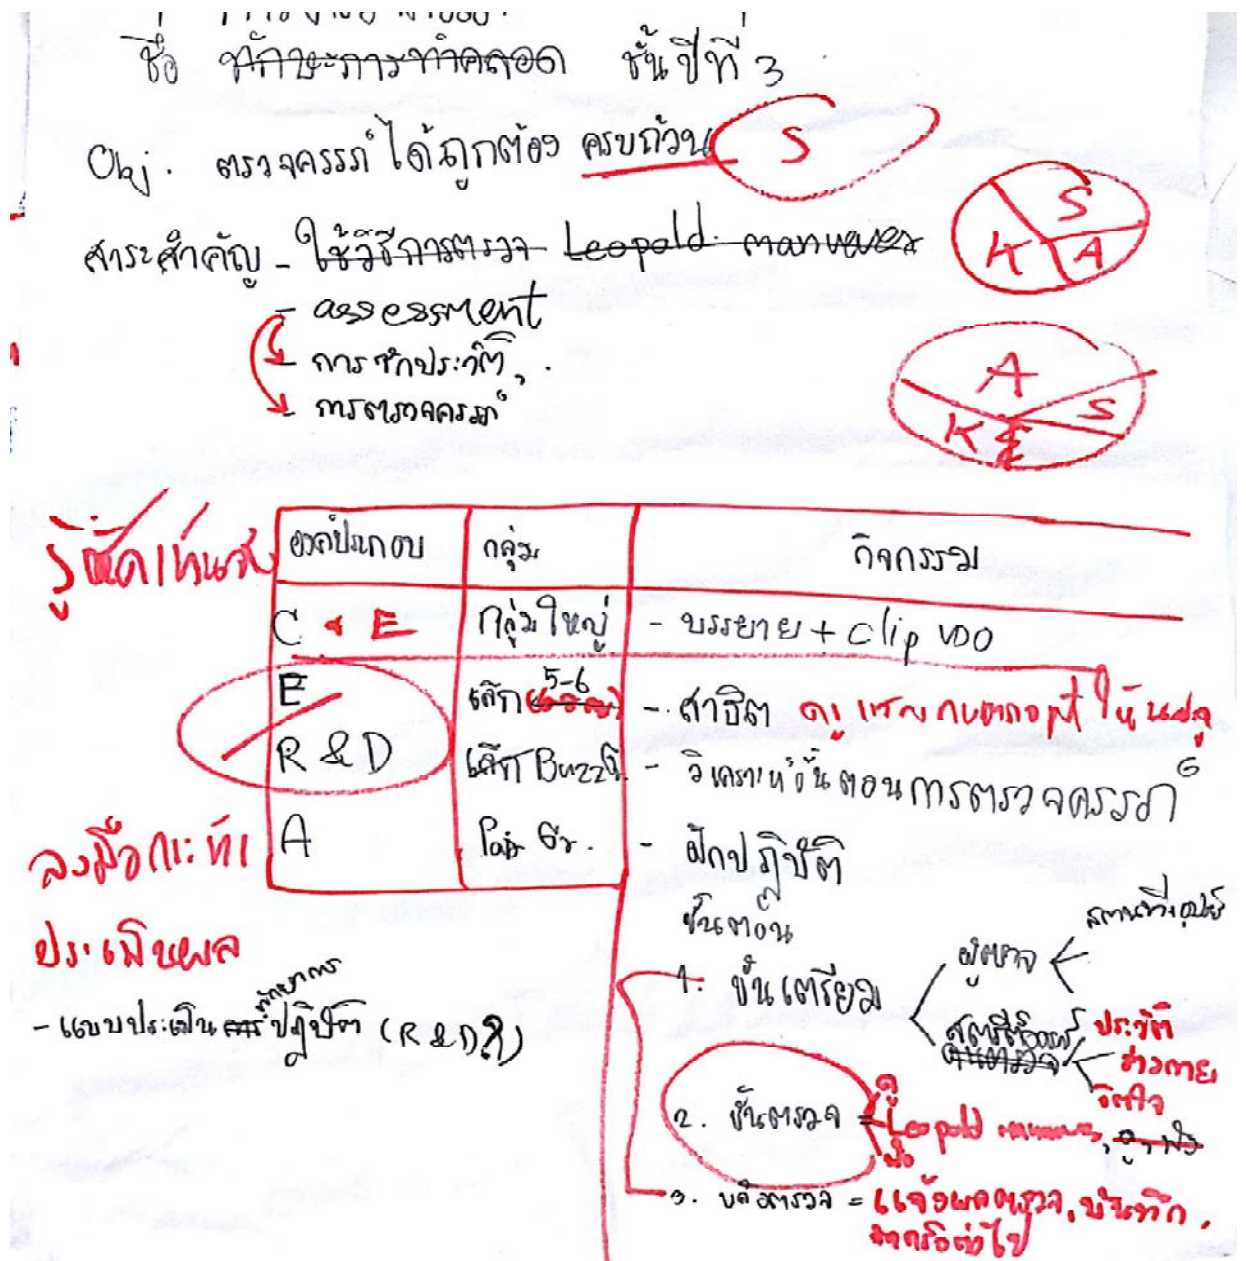 ชื่อ ทักษะการทำคลอด ชั้นปีที่ 3
Obj. ตรวจครรภ์ได้ถูกต้อง ครบถ้วน S
S
K A
สาระสำคัญ - ใช้วิธีการตรวจ Leopold manuever
- assessment
- การซักประวัติ,
- การตรวจครรภ์
A
K S
องค์ประกอบ กลุ่ม กิจกรรม
C + E กลุ่มใหญ่ - บรรยาย + clip VDO
E เล็ก 5-6 - สาธิต
R & D เล็ก Buzz G - วิเคราะห์ขั้นตอนการตรวจครรภ์
ลงมือกระทำ A Pair Gr. - ฝึกปฏิบัติ
ขั้นตอน
ประเมินผล
- แบบประเมินทักษะการปฏิบัติ (R & D
1. ขั้นเตรียม ผู้ตรวจ
ประวัติ
ร่างกาย
จิตใจ
2. ขั้นตรวจ = ดู Leopold
3. หลังตรวจ = แจ้งผลตรวจ, บันทึก,